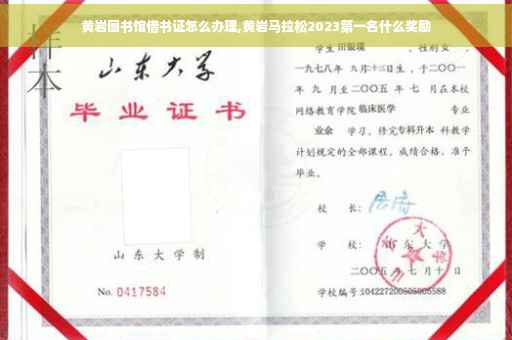 黄岩图书馆借书证怎么办理,黄岩马拉松2023第一名什么奖励
样本
山东大学
毕业证书
山东大学制
No. 0417584
学生 田银瑞 , 性别女 ,
一九七八年 九月十三日生 , 于二〇〇一
年 九 月至二〇〇五 年 七 月在本校
网络教育学院 临床医学 专业
业余 学习, 修完专科升本 科教学
计划规定的全部课程, 成绩合格, 准予
毕业。
校 长:
学 校: 山东大学
二〇〇五年 七 月十 日
学校编号: 104227200505005588